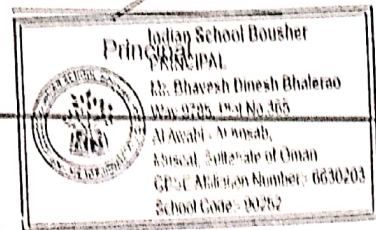 Principal
Indian School Bousher
PRINCIPAL
Mr. Bhavesh Dinesh Bhalerao
Way 3785, Plot No 365
Al Awabi - Al Ansab,
Muscat, Sultanate of Oman
CBSE Affiliation Number - 6630203
School Code - 90252